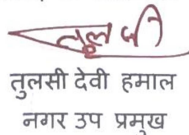 तुलसी
तुलसी देवी हमाल
नगर उप प्रमुख